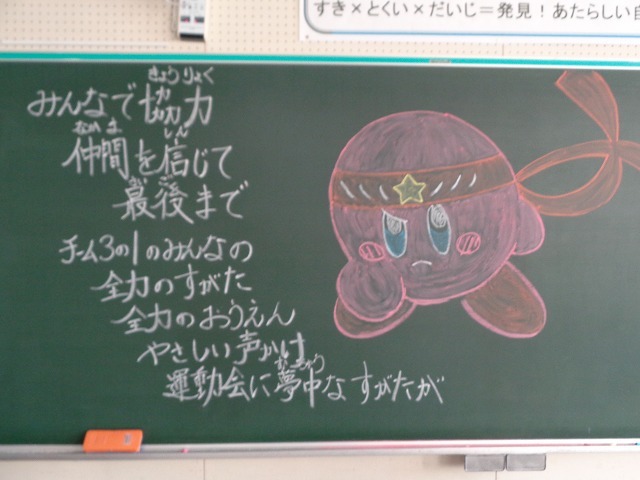 すき×とくい×だいじ＝発見！あたらしい自
きょうりょく
みんなで協力
なかま しん
仲間を信じて
さいご
最後まで
チーム3の1のみんなの
全力のすがた
全力のおうえん
やさしい声かけ
むちゅう
運動会に夢中なすがたが